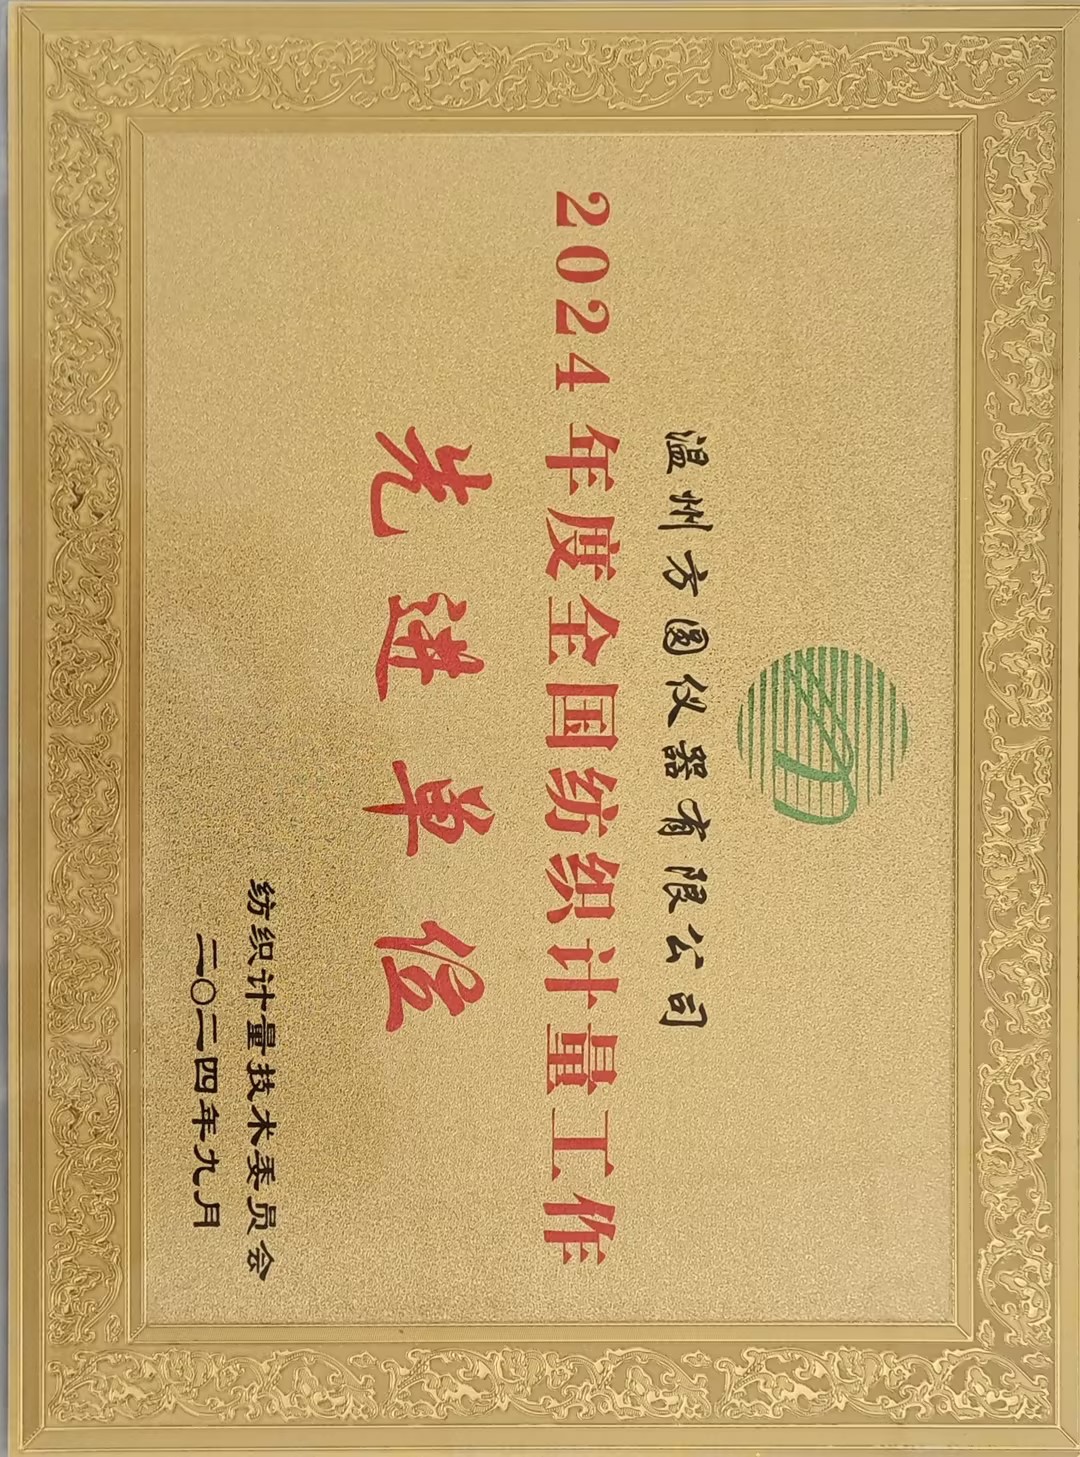 温州方圆仪器有限公司
2024年度全国纺织计量工作
先进单位
纺织计量技术委员会
二〇二四年九月